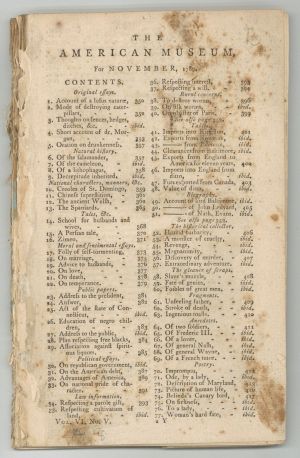 THE
AMERICAN MUSEUM,
For NOVEMBER, 1789.
CONTENTS.
Original essays.
1. Account of a lusus naturæ, 350
2. Mode of destroying caterpillars, 350
3. Thoughts on fences, hedges, ditches, &c. ibid.
4. Short account of dr. Morgan, 353
5. Oration on drunkenness, 357
Natural history.
6. Of the salamander, 357
7. Of the cameleon, ibid.
8. Of a lithophagus, 358
9. Decrepitude inherited, ibid.
National characters, manners, &c.
10. Creoles of St. Domingo, 359
11. Chinese superstition, 361
12. The ancient Welsh, 360
13. The Spaniards, 365
Tales, &c.
14. School for husbands and wives, 368
15. A Persian tale, 370
16. Zimeo, 371
Moral and sentimental essays.
17. Folly of self-tormenting, 373
18. On marriage, 373
19. Advice to husbands, 375
20. On love, 377
21. On death, 378
22. On temperance, 379
Public papers.
23. Address to the president, 381
24. Answer, 382
25. Act of the Rate of Connecticut, ibid.
26. Education of negro children, 383
27. Address to the public, ibid.
28. Plan respecting free blacks, 384
29. Association against spirituous liquors, 385
Political essays.
30. On republican government, ibid.
31. On the American debt, 387
32. Advantages of America, 389
33. On national pride of characters, 391
Law information.
34. Respecting a parole gift, 393
35. Respecting cultivation of land, ibid.
VOL. VI. No. V.
36. Respecting interest, 394
37. Respecting a will, 394
Rural concerns.
38. To destroy worms, 396
39. On silk worms, ibid.
40. On plaister of Paris, 399
See also page 350.
Tables.
41. Imports into Britain, 401
42. Exports from ibid.
43. from ibid.
44. Clearances from Baltimore, ibid.
45. Exports from England to America for eleven years, 402
46. Imports into England from ditto, ibid.
47. Furs exported from Canada, 403
48. Value of ditto, ibid.
Biography.
49. Account of lord Baltimore, ibid.
50. of John Ledyard, 405
51. of Nath. Evans, ibid.
See also page 353.
The historical collector.
52. Indian barbarity, 406
53. A murther of cruelty, ibid.
54. Revenge, ibid.
55. Magnanimity, ibid.
56. Discovery of murder, 407
57. Extraordinary adventure, ibid.
The gleaner of scraps.
58. Shaw's miracle, 408
59. Fate of genius, ibid.
60. Foibles of great men, ibid.
Fragments.
61. Unfeeling father, 409
62. Stroke of death, ibid.
63. Ingenuous trails, 410
Anecdotes.
64. Of two soldiers, 411
65. Of Frederic III. ibid.
66. Of a lover, ibid.
67. Of general Nash, ibid.
68. Of general Wayne, ibid.
69. Of a French tutor, ibid.
Poetry.
70. Impromptu,
71. Ode, by a lady, ibid.
72. Description of Maryland, 413
73. Picture of human life, 419
74. Belinda's Canary bird, 417
75. On firkness, ibid.
76. To a lady, ibid.
77. Woman's hard fate, ibid.
2 Y